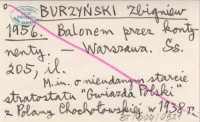 BURZYŃSKI Zbigniew
1956. Balonem przez konty-
nenty. – Warszawa. Ss.
205, il.
M. in. o nieudanym starcie
stratostatu "Gwiazda Polski"
z Polany Chochołowskiej w 1938 r.